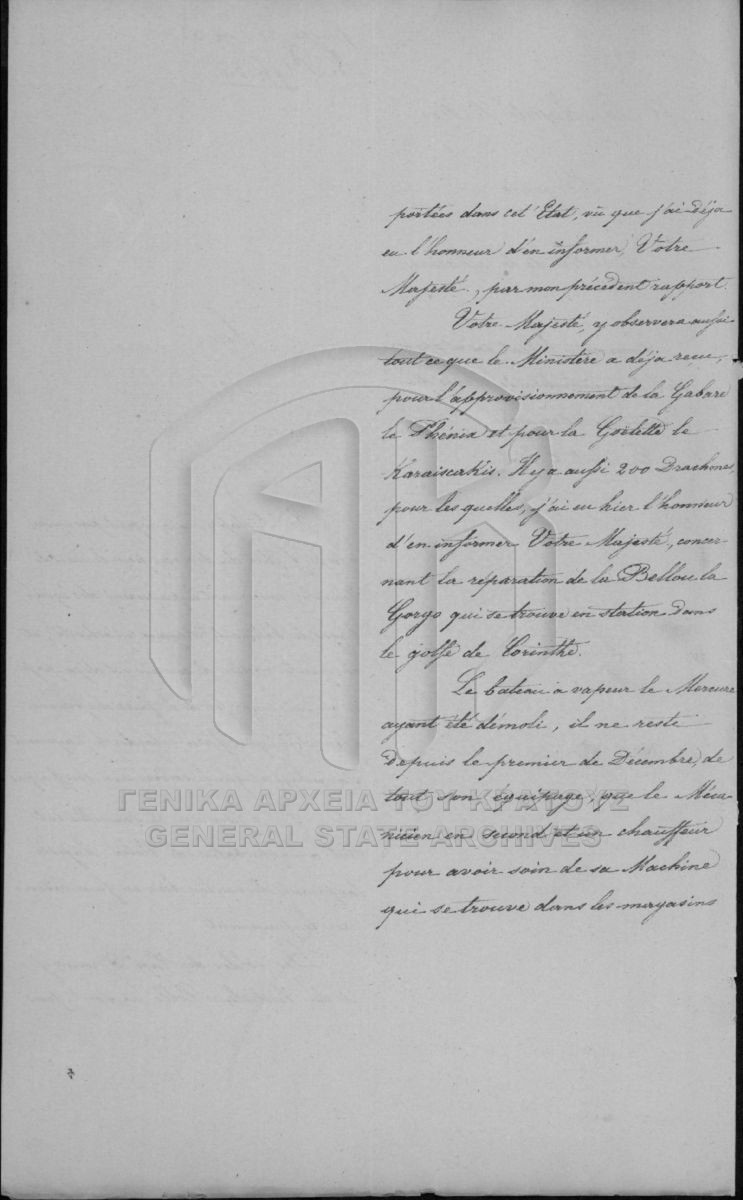 portées dans cet Etat, vû que j'ai déja
eu l'honneur d'en informer, Votre
Majesté, par mon précédent rapport.
Votre Majesté, y observera aussi
tout ce que le Ministère a déja reçu,
pour l'approvisionnement de la Gabare
le Phénix et pour la Goëlette le
Karaiscakis. Il y a aussi 200 Drachmes,
pour les quelles, j'ai eu hier l'honneur
d'en informer Votre Majesté, concer-
nant la réparation de la Bellou la
Gorgo qui se trouve en station dans
le golfe de Corinthe.
Le bateau à vapeur le Mercure
ayant été démoli, il ne reste
depuis le premier de Décembre, de
tout son équipage, que le Méca-
nicien en second et un chauffeur
pour avoir soin de sa Machine
qui se trouve dans les magasins
ΓΕΝΙΚΑ ΑΡΧΕΙΑ ΤΟΥ ΚΡΑΤΟΥΣ
GENERAL STATE ARCHIVES